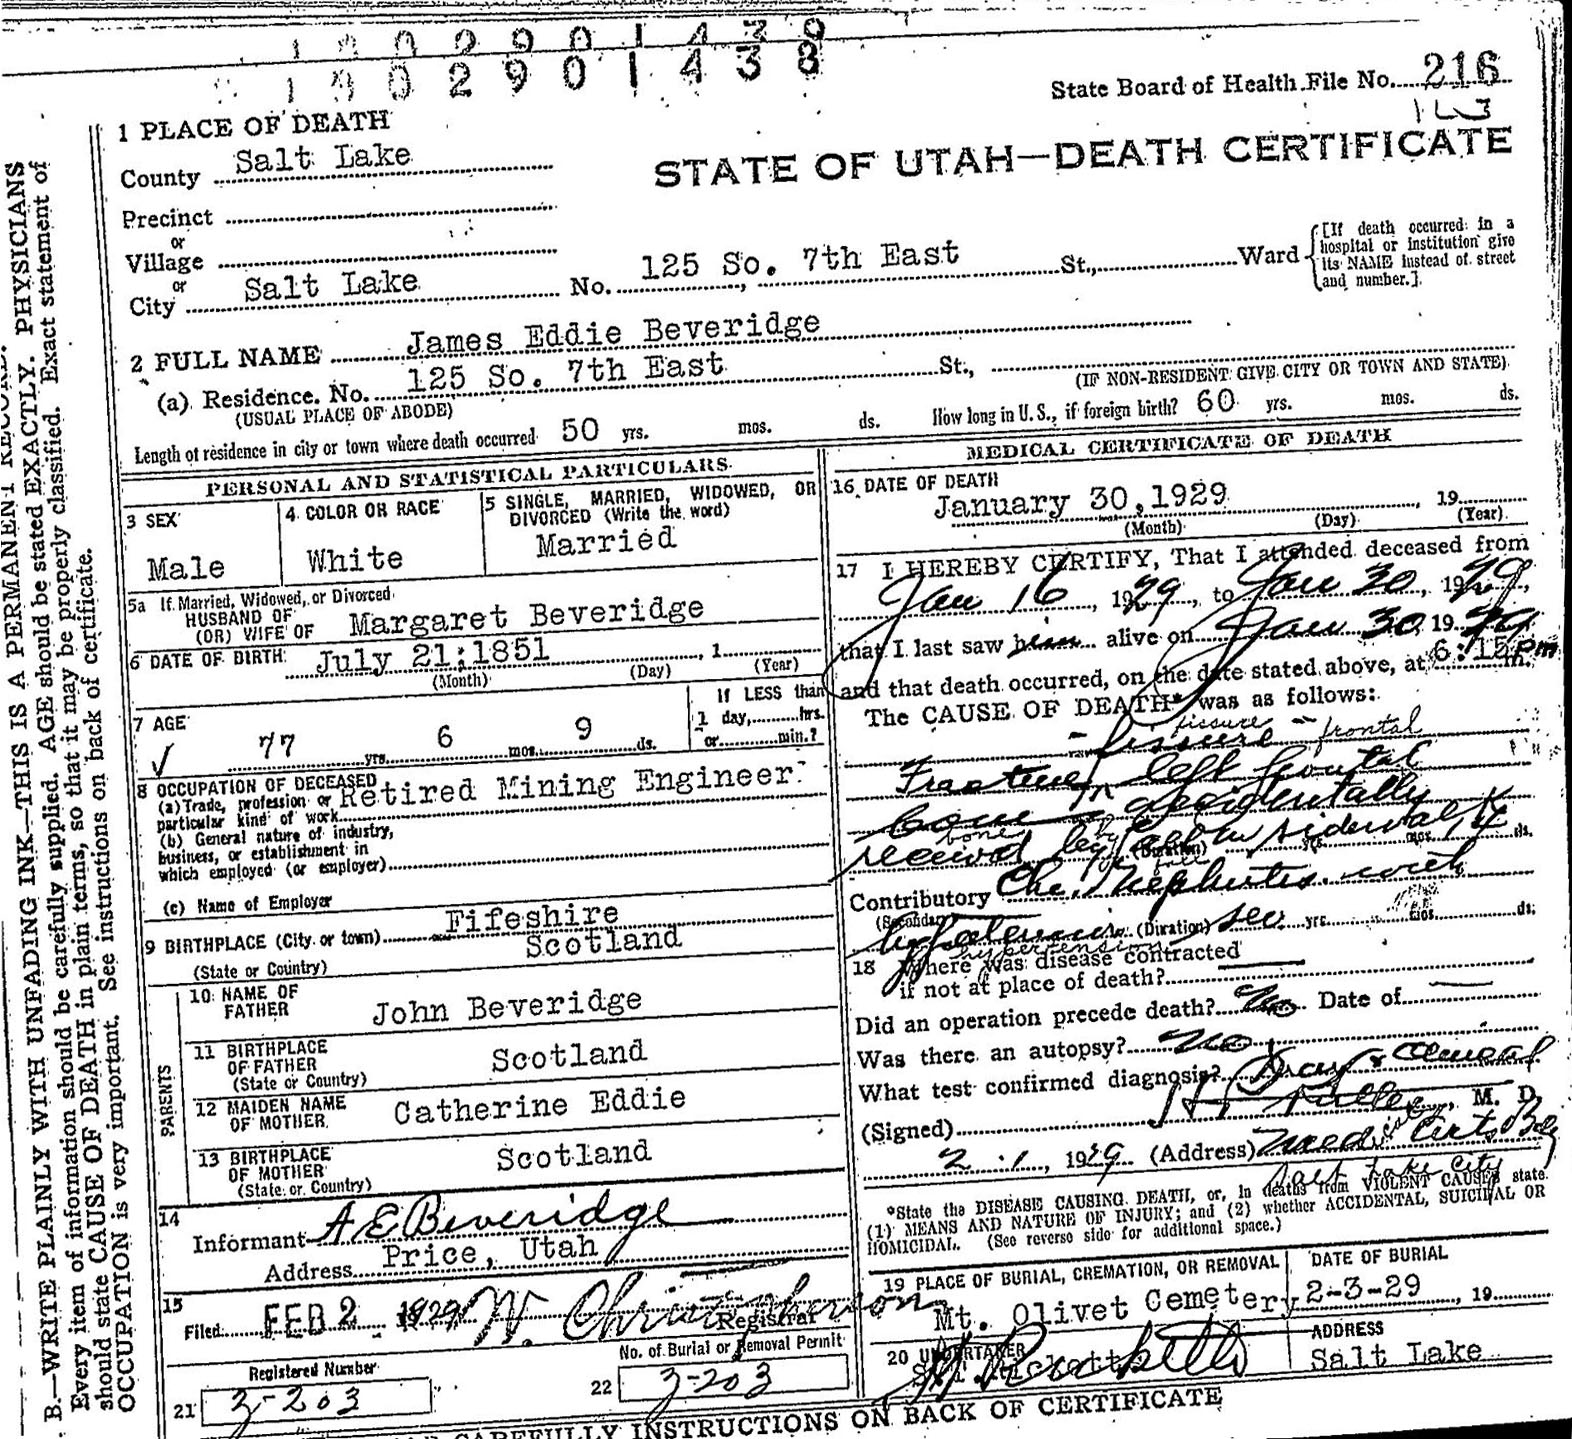 1 9 0 2 9 0 1 4 3 8
1 9 0 2 9 0 1 4 3 8
State Board of Health File No. 216
STATE OF UTAH—DEATH CERTIFICATE
1 PLACE OF DEATH
County Salt Lake
Precinct
or
Village
or
City Salt Lake No. 125 So. 7th East St., Ward
[If death occurred in a
hospital or institution give
its NAME instead of street
and number.]
2 FULL NAME James Eddie Beveridge
(a) Residence. No. 125 So. 7th East St.,
(USUAL PLACE OF ABODE)
(IF NON-RESIDENT GIVE CITY OR TOWN AND STATE)
Length of residence in city or town where death occurred 50 yrs. mos. ds. How long in U. S., if foreign birth? 60 yrs. mos. ds.
PERSONAL AND STATISTICAL PARTICULARS
3 SEX
Male
4 COLOR OR RACE
White
5 SINGLE, MARRIED, WIDOWED, OR
DIVORCED (Write the word)
Married
5a If Married, Widowed, or Divorced
HUSBAND OF
(OR) WIFE OF Margaret Beveridge
6 DATE OF BIRTH July 21, 1851, 1
(Month) (Day) (Year)
7 AGE
77 yrs. 6 mos. 9 ds.
If LESS than
1 day, hrs.
or min.?
8 OCCUPATION OF DECEASED
(a) Trade, profession or
particular kind of work Retired Mining Engineer
(b) General nature of industry,
business, or establishment in
which employed (or employer)
(c) Name of Employer
9 BIRTHPLACE (City or town) Fifeshire
(State or Country) Scotland
PARENTS
10 NAME OF
FATHER John Beveridge
11 BIRTHPLACE
OF FATHER
(State or Country) Scotland
12 MAIDEN NAME
OF MOTHER Catherine Eddie
13 BIRTHPLACE
OF MOTHER
(State or Country) Scotland
14
Informant A E Beveridge
Address Price, Utah
15
Filed FEB 2 1929 W. Christopherson
Registrar
Registered Number
21 3-203
No. of Burial or Removal Permit
22 3-203
MEDICAL CERTIFICATE OF DEATH
16 DATE OF DEATH
January 30, 1929, 19
(Month) (Day) (Year)
17 I HEREBY CERTIFY, That I attended deceased from
Jan 16, 1929, to Jan 30, 1929,
that I last saw him alive on Jan 30, 1929
and that death occurred, on the date stated above, at 6:15 Pm
The CAUSE OF DEATH* was as follows:
fissure - frontal
- fissure
Fracture left frontal
bone accidentally
bone by
received by fall on sidewalk
(Duration) yrs. mos. ds.
fall
Contributory Chr. Nephritis with
(Secondary)
hypertension (Duration) sev yrs. mos. ds.
hypertension
18 Where was disease contracted
if not at place of death?
Did an operation precede death? No Date of
Was there an autopsy? No
What test confirmed diagnosis? Xray & clinical
(Signed) M. D.
2-1, 1929 (Address) Med. Arts Bdg
Salt Lake City
*State the DISEASE CAUSING DEATH, or, in deaths from VIOLENT CAUSES state
(1) MEANS AND NATURE OF INJURY; and (2) whether ACCIDENTAL, SUICIDAL OR
HOMICIDAL. (See reverse side for additional space.)
19 PLACE OF BURIAL, CREMATION, OR REMOVAL
Mt. Olivet Cemetery
DATE OF BURIAL
2-3-29, 19
20 UNDERTAKER
ADDRESS
Salt Lake
CAREFULLY INSTRUCTIONS ON BACK OF CERTIFICATE
B.—WRITE PLAINLY WITH UNFADING INK—THIS IS A PERMANENT RECORD.
Every item of information should be carefully supplied. AGE should be stated EXACTLY. PHYSICIANS
should state CAUSE OF DEATH in plain terms, so that it may be properly classified. Exact statement of
OCCUPATION is very important. See instructions on back of certificate.